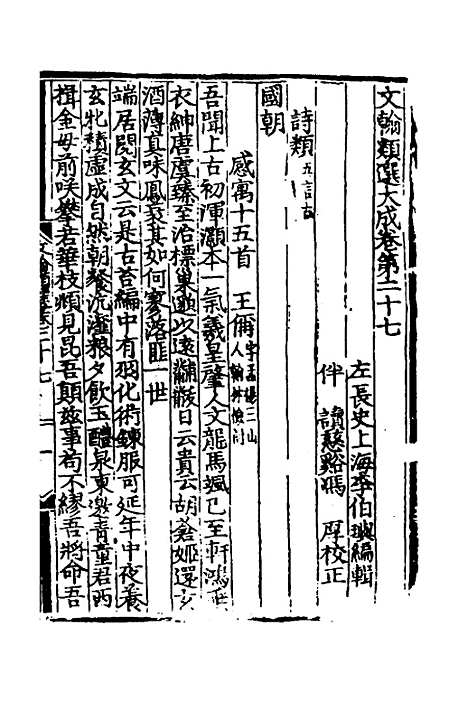 文翰類選大成卷第二十七
左長史上海李伯璵編輯
伴讀慈谿馮厚校正
詩類五言古
國朝
感寓十五首 王偁字孟揚三山人翰林檢討
吾聞上古初渾灝本一氣羲皇肇人文龍馬颯已至軒鴻垂
衣紳唐虞臻至治標巢邈以遠黼黻日云貴云胡蒼姬還玄
酒薄真味鳳衰其如何寥落匪一世
端居閱玄文云是古苔編中有羽化術鍊服可延年中夜養
玄牝積虛成自然朝餐沆瀣粮夕飲玉醴泉東邀青童君西
揖金母前咲攀若華枝頫見昆吾顛玆事苟不繆吾將命吾